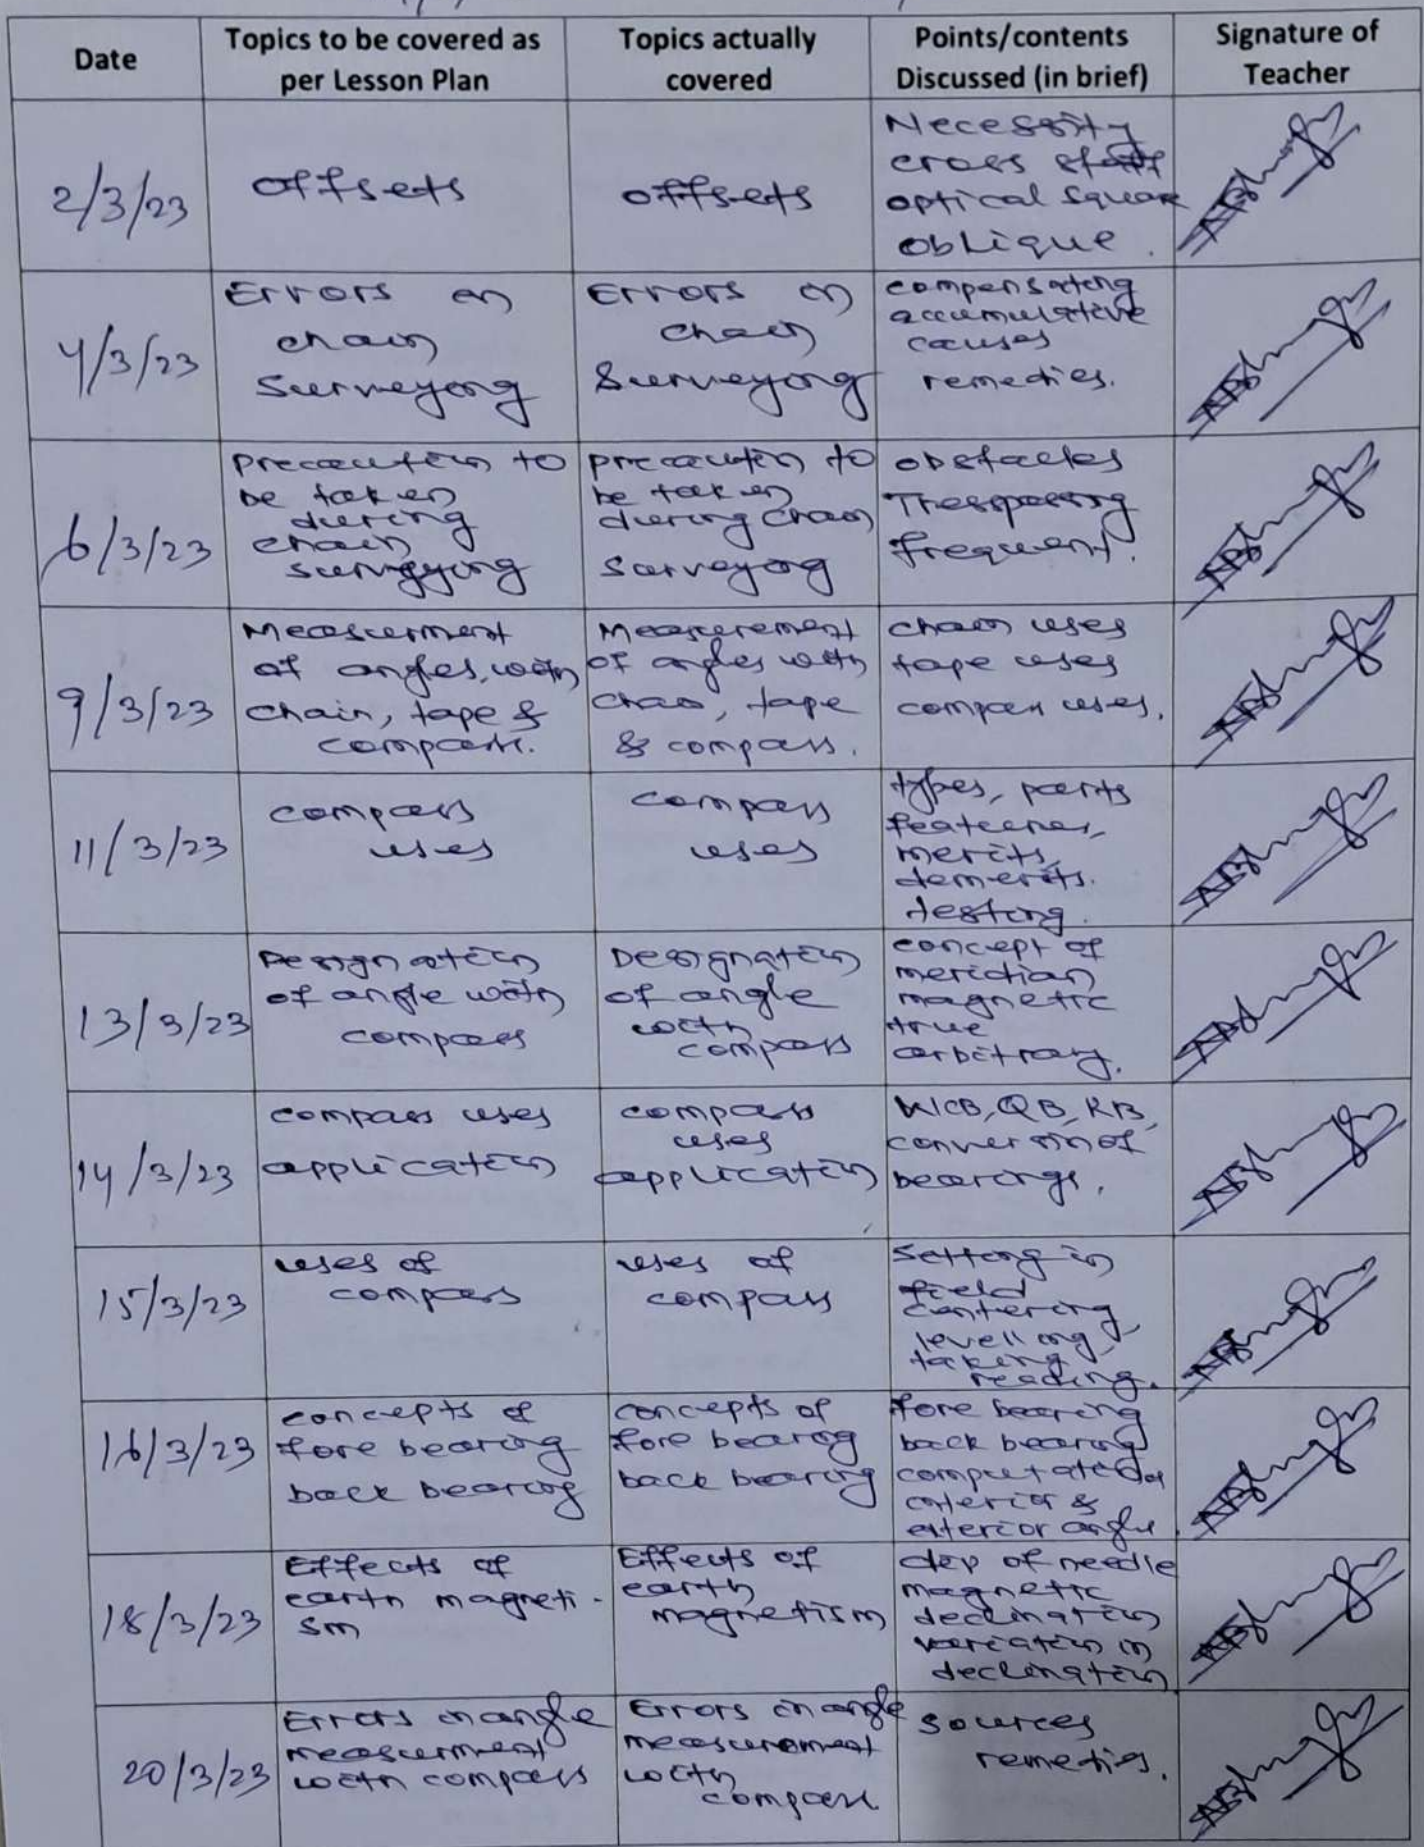 Date
Topics to be covered as
per Lesson Plan
Topics actually
covered
Points/contents
Discussed (in brief)
Signature of
Teacher
2/3/23
offsets
offsets
Necessity
cross staff
optical square
oblique.
4/3/23
Errors in
chain
Surveying
Errors in
chain
Surveying
compensating
accumulative
causes
remedies.
6/3/23
precaution to
be taken
during
chain
surveying
precaution to
be taken
during chain
Surveying
obstacles
Tresspassing
frequent.
9/3/23
Measurment
of angles, with
chain, tape &
compass.
Measurement
of angles with
chain, tape
& compass.
chain uses
tape uses
compass uses.
11/3/23
compass
uses
compass
uses
types, parts
features,
merits,
demerits.
testing.
13/3/23
Designation
of angle with
compass
Designation
of angle
with
compass
concept of
meridian
magnetic
true
arbitrary.
14/3/23
compass uses
application
compass
uses
application
WCB, QB, RB,
conversion of
bearings.
15/3/23
uses of
compass
uses of
compass
Setting in
field
centering,
levelling,
taking
reading.
16/3/23
concepts of
fore bearing
back bearing
concepts of
fore bearing
back bearing
fore bearing
back bearing
computation of
interior &
exterior angle.
18/3/23
Effects of
earth magneti-
sm
Effects of
earth
magnetism
dip of needle
magnetic
declination
variation in
declination
20/3/23
Errors in angle
measurment
with compass
Errors in angle
measurement
with
compass
sources
remedies.